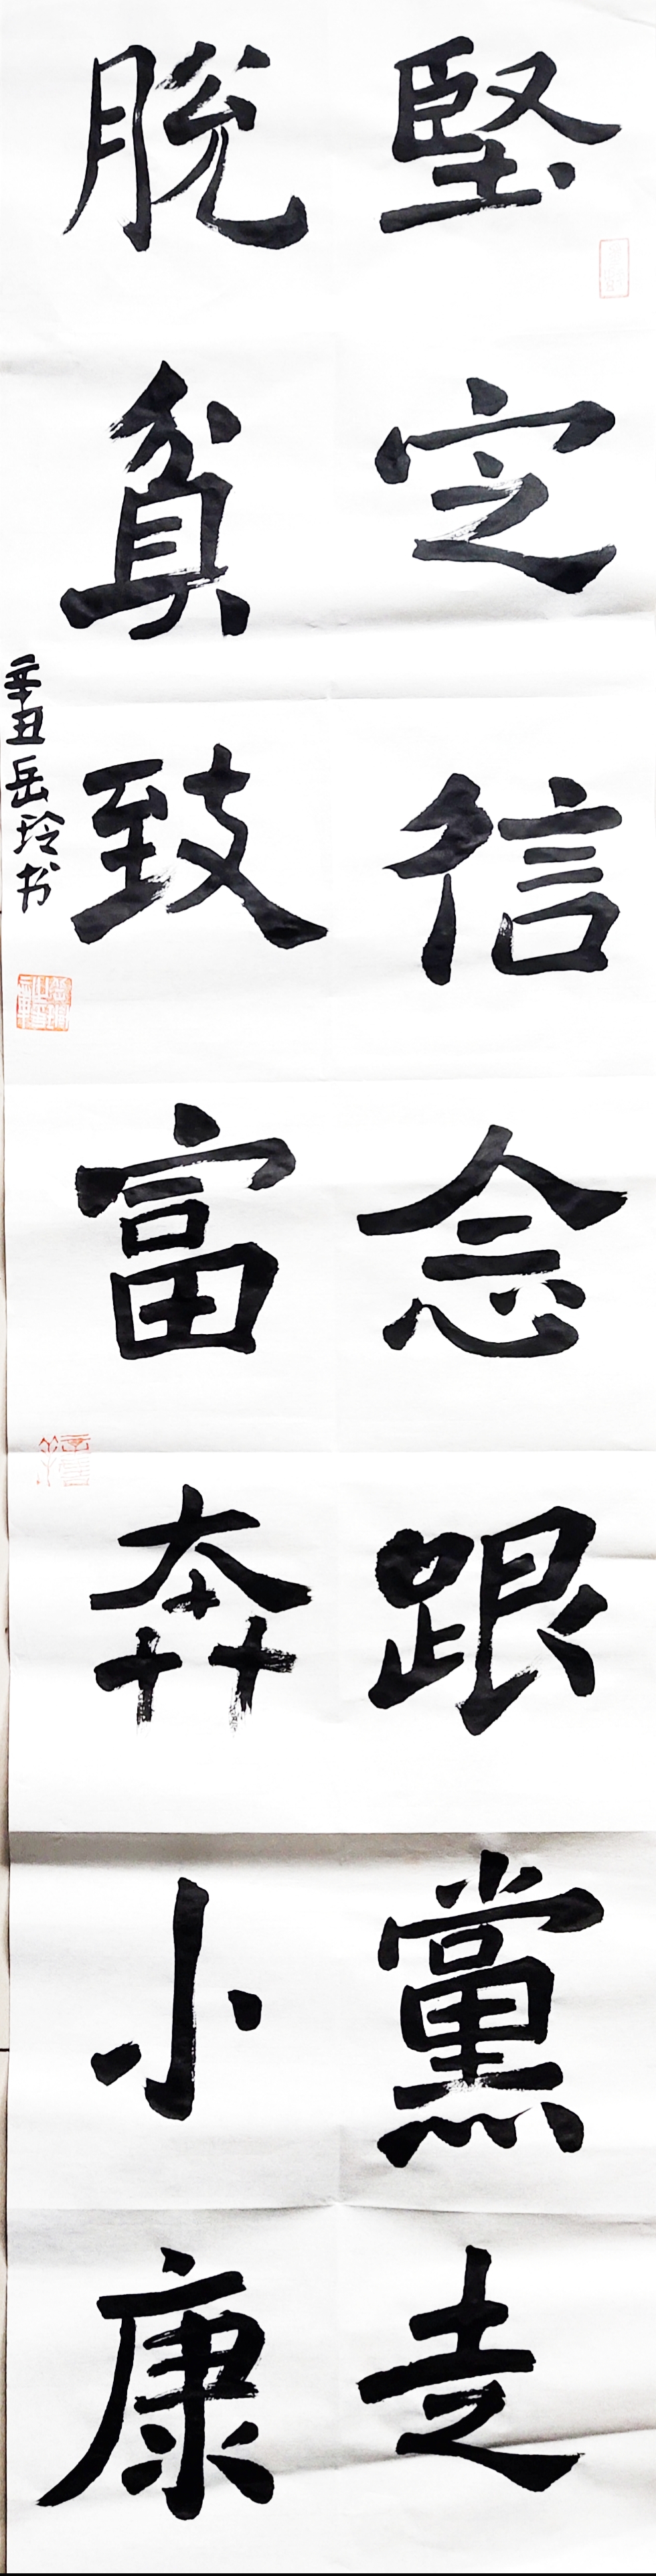 堅定信念跟黨走
脫貧致富奔小康
辛丑岳玲书